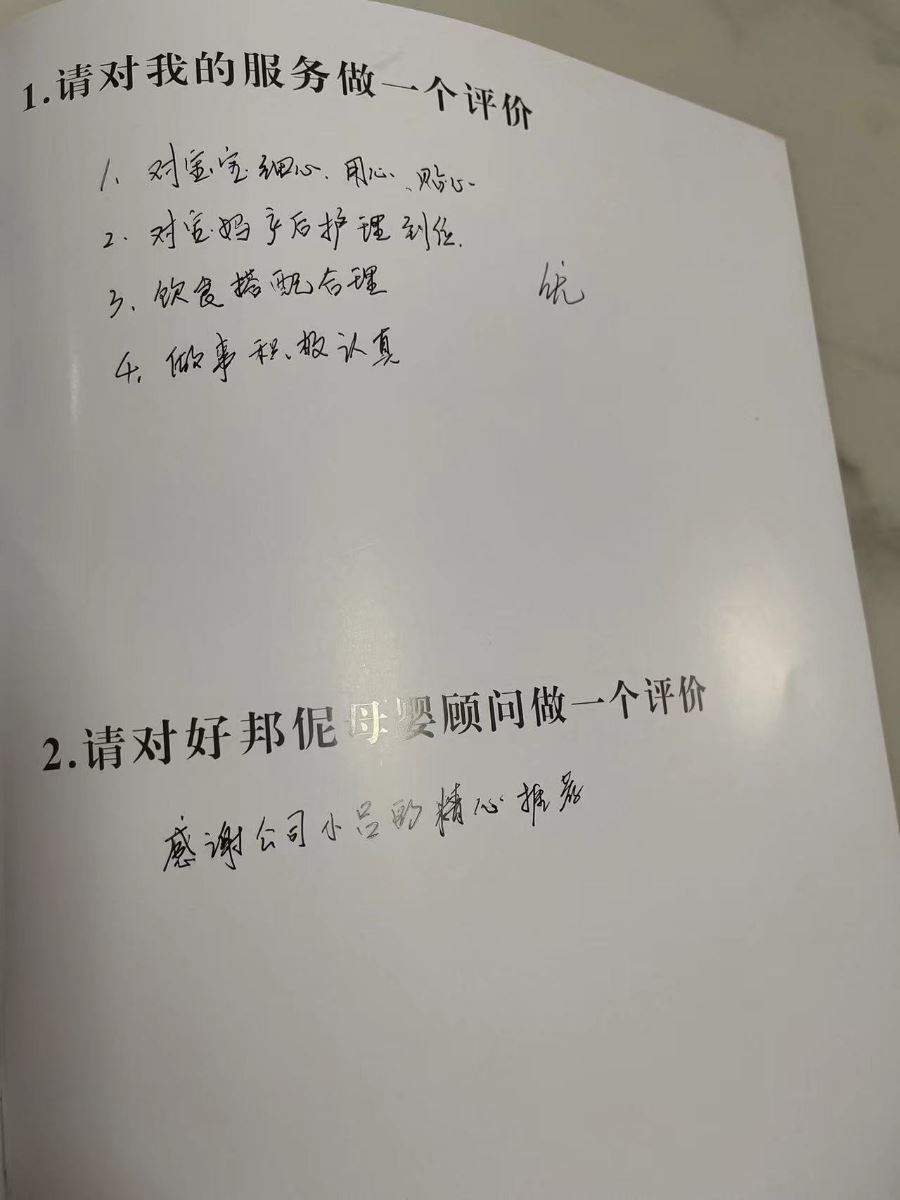 1.请对我的服务做一个评价
1、对宝宝细心、用心、贴心
2、对宝妈产后护理到位.
3、饮食搭配合理
优
4、做事积极认真
2.请对好邦伲母婴顾问做一个评价
感谢公司小吕的精心推荐